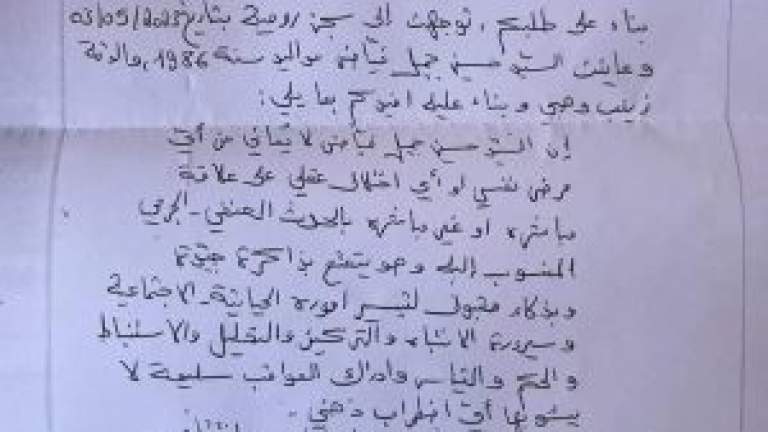 بناء على طلبكم، توجهت إلى سجن رومية بتاريخ 03/05/2023
وعاينت السيد حسين جميل فياض مواليد سنة 1986، والدته
زينب وهبي وبناء عليه افيدكم بما يلي:
إن السيد حسين جميل فياض لا يعاني من أي
مرض نفسي او أي اختلال عقلي على علاقة
مباشرة او غير مباشرة بالحدث العنفي - الجرمي
المنسوب إليه وهو يتمتع بذاكرة جيدة
وبذكاء مقبول لتسيير أموره الحياتية - الاجتماعية
وسيرورة الانتباه والتركيز والتحليل والاستنباط
والحكم والقياس وادراك العواقب سليمة لا
يشوبها أي اضطراب ذهني.